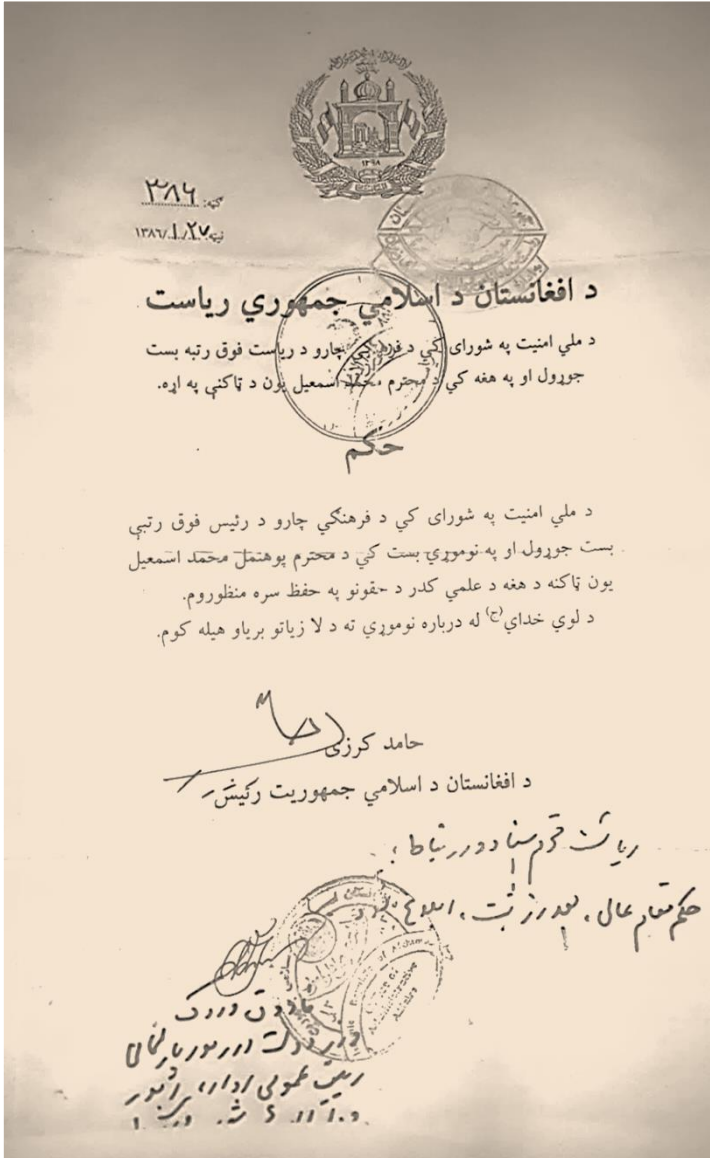 ۱۲۹۸
ګڼه: ۳۸۶
نېټه: ۲۷/۱/۱۳۸۶
د افغانستان د اسلامي جمهوري ریاست
د ملي امنیت په شورای کي د فرهنګي چارو د ریاست فوق رتبه بست
جوړول او په هغه کي د محترم محمد اسمعیل یون د ټاکني په اړه.
حکم
د ملي امنیت په شورای کي د فرهنګي چارو د رئیس فوق رتبې
بست جوړول او په نوموړي بست کي د محترم پوهنمل محمد اسمعیل
یون ټاکنه د هغه د علمي کدر د حقونو په حفظ سره منظوروم.
د لوي خدای(ج) له درباره نوموړي ته د لا زیاتو بریاو هیله کوم.
حامد کرزی
د افغانستان د اسلامي جمهوریت رئیس
ریاست محترم اسناد و ارتباط:
حکم مقام عالی، بعد از ثبت، ابلاغ
فاروق وردک
وزیر دولت در امور پارلمانی
رئیس عمومی اداره امور